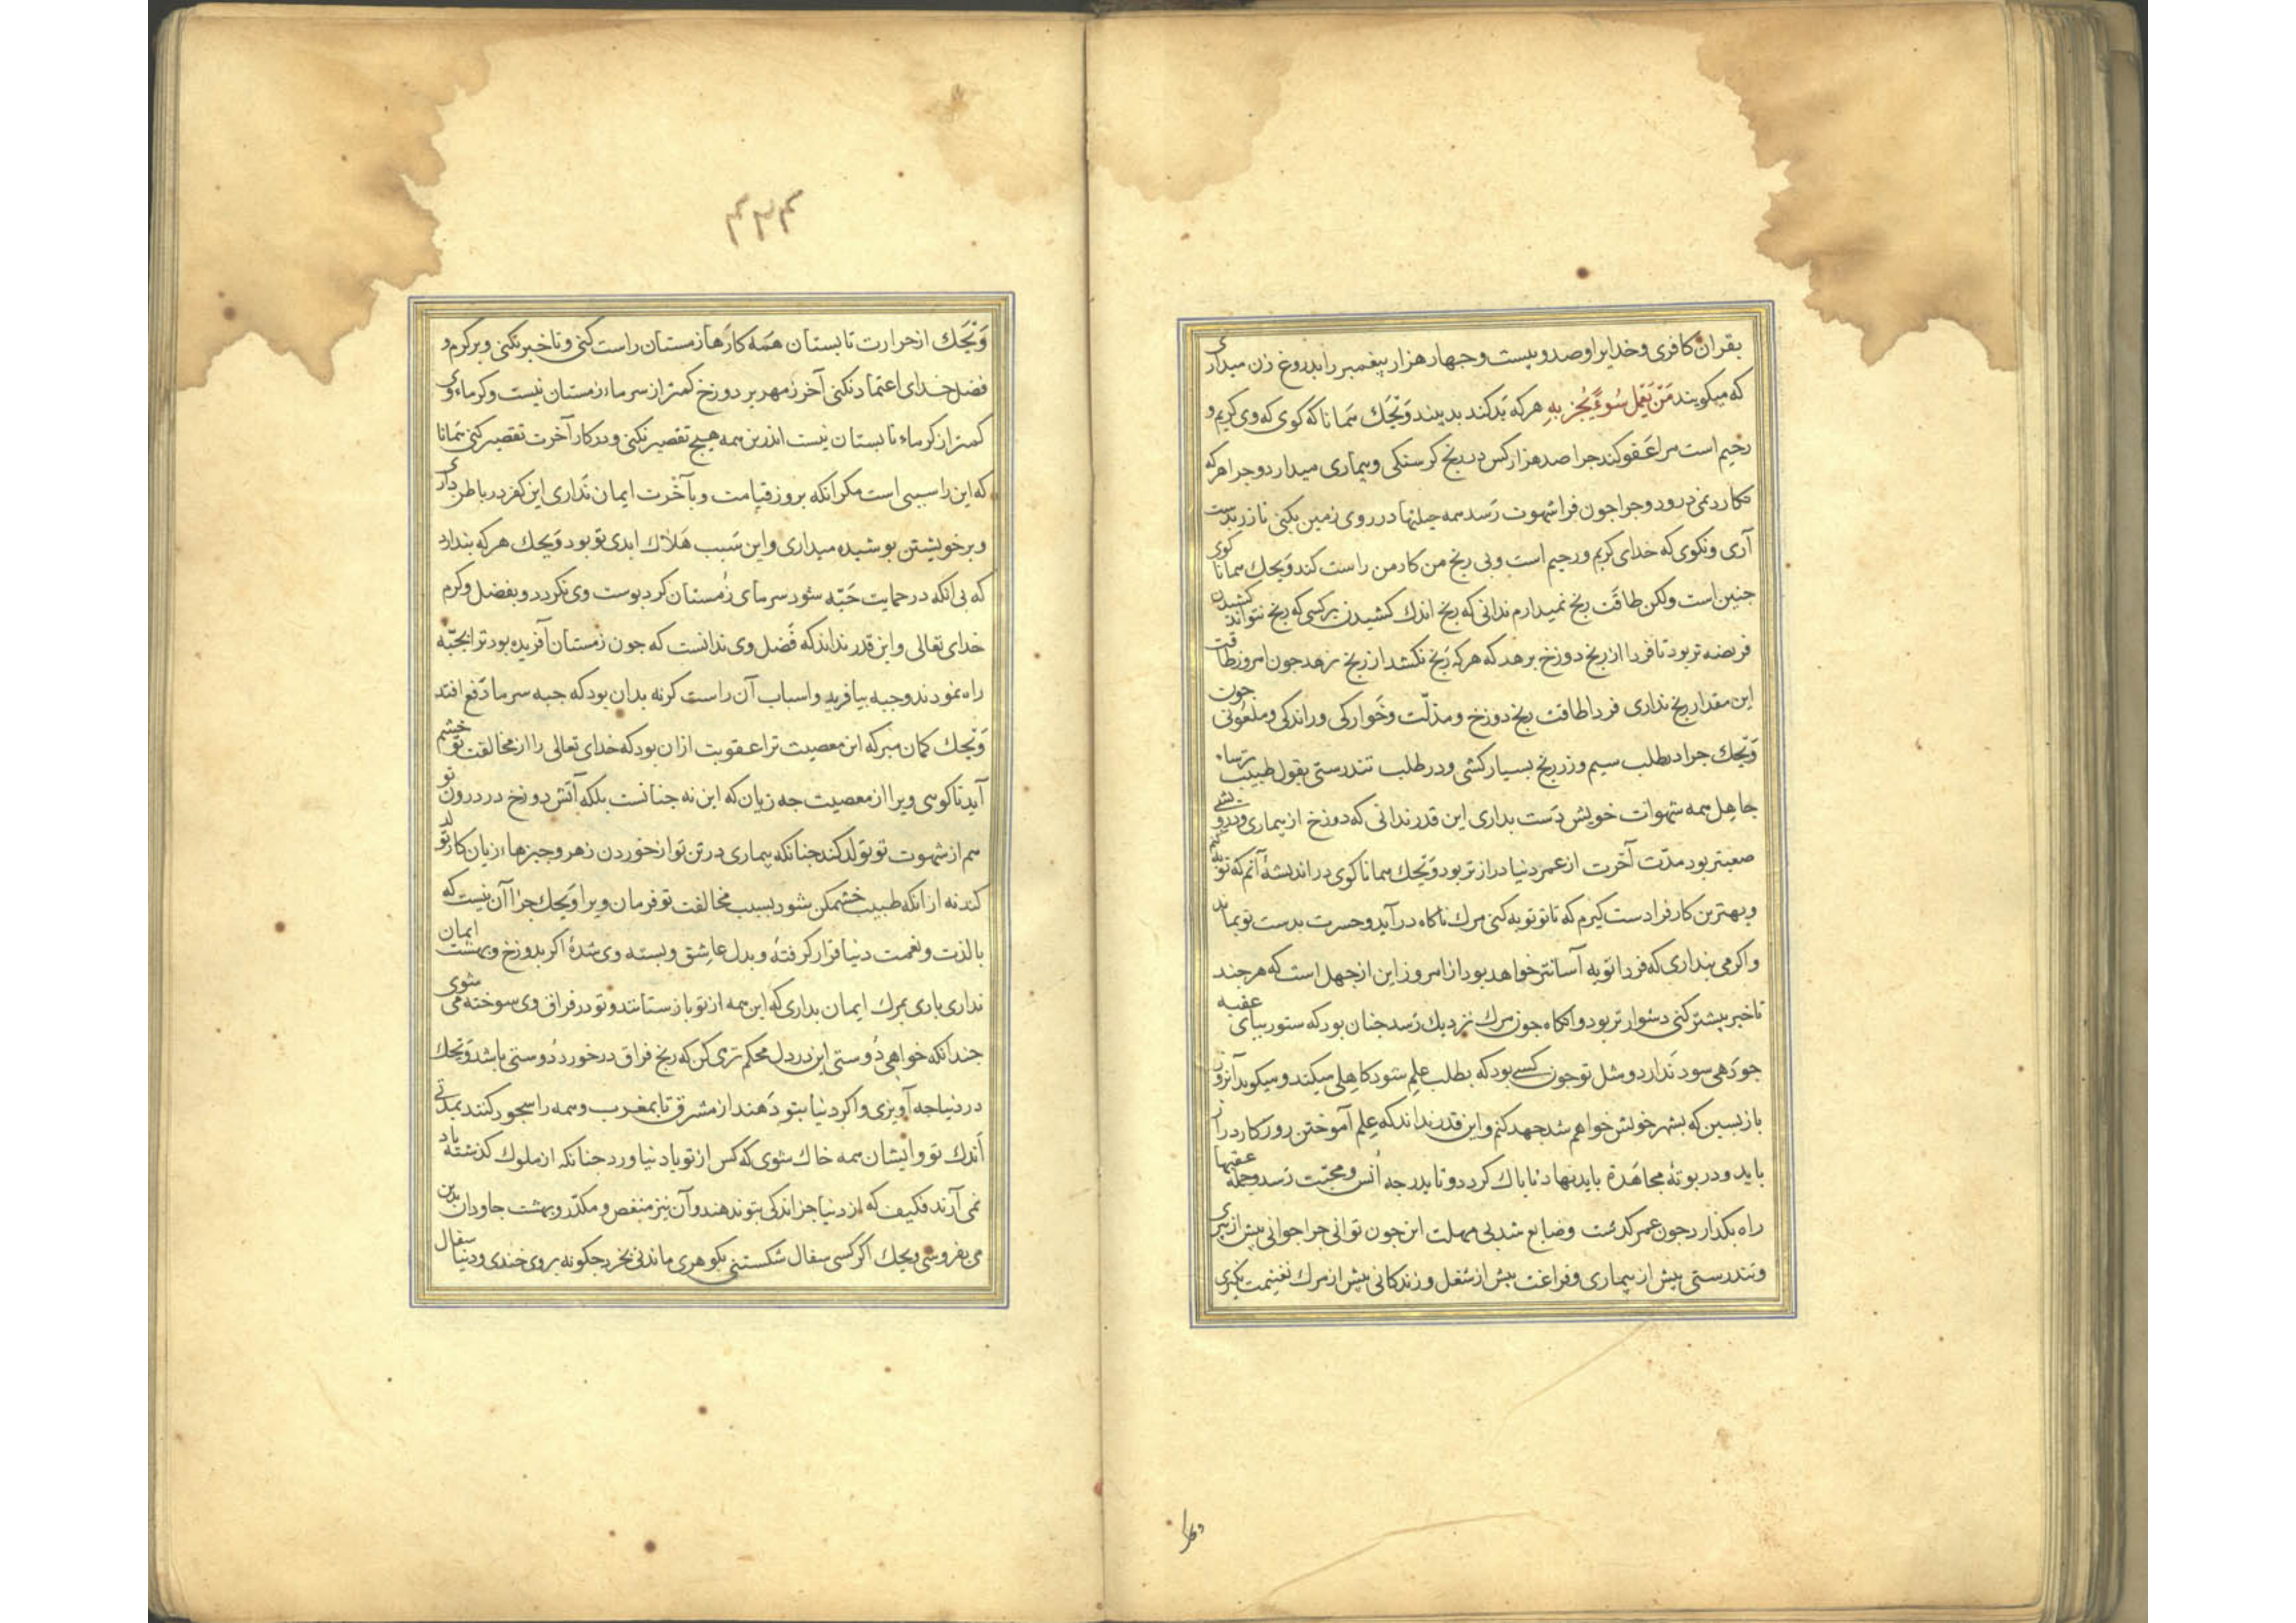 بقران کافری وخدایرا وصد وبیست وجهار هزار پیغمبر را بدروغ زن میداری
که میکویند مَنْ یَعْمَل سُوءً یُجْزَ بِهِ هرکه بَد کند بد بیند وَیْحَك همانا که کوی که وی کریم و
رحیم است مرا عَفو کند جرا صد هزار کس در رنج کرسنکی وبیماری میدارد وجرا هرکه
نکارد نمی درود وجرا جون فرا شهوت رَسد همه حیلتها در روی زمین بکنی تا زر بدست
آری ونکوی که خدای کریم ورحیم است وبی رنج من کار من راست کند وَیحك همانا کوی
جنین است ولکن طاقَت رنج نمیدارم ندانی که رنج اندك کشیدن بر کسی که رنج نتواند کشیدن
فریضه تر بود تا فردا از رنج دوزخ برهد که هرکه رَنج نکشد از رنج نرهد جون امروز طاقت
این مقدار رنج نداری فردا طاقت رنج دوزخ ومذلّت وخَوارکی وراندکی وملعُونی جون
وَیْحك جرا در طلب سیم وزر رنج بسیار کشی ودر طلب تندرستی بقول طبیب ترساء
جاهِل همه شهوات خویش دَست بداری این قدر ندانی که دوزخ از بیماری ودرویشی
صعبتر بود ومدّت آخرت از عمر دنیا دراز تر بود وَیْحك همانا کوی در اندیشهٔ آنم که توبه کنم
وبهترین کار فرا دست کیرم که تا تو توبه کنی مرك ناکاه در آید وحسرت بدست تو بماند
واکر می بنداری که فردا توبه آسانتر خواهد بود از امروز این از جهل است که هرجند
تاخیر بیشتر کنی دشوار تر بود وانکاه جون مرك نزدیك رَسد جنان بود که ستور ببای عقبه
جو دَهی سود نَدارد ومثل تو جون کسے بود که بطلب عِلم شود کاهِلی میکند ومیکوید آنروز
بازبسین که بشهر خویش خواهم شد جهد کنم واین قدر نداند که عِلم آموختن روزکار دراز
باید ودر بوتهٔ مجاهَدة باید نهاد تا باك کردد وتا بدرجه اُنس ومحبّت رَسد وجمله عقبها
راه بکذارد جون عمر کذشت وضایع شد بی مهلت این جون توانی جرا جوانی بیش از پیری
وتندرستی بیش از بیماری وفراغت بیش از شغل وزندکانی بیش از مرك بغنیمت نکیری
وَیْحَك از حرارت تابستان همَه کارها زمستان راست کنی وتاخیر نکنی وبر کرم و
فضل خدای اعتماد نکنی آخر زمهریر دوزخ کمتر از سرماء زمستان نیست وکرماء وی
کمتر از کرماء تابستان نیست اندرین همه هیچ تقصیر نکنی ودر کار آخرت تقصیر کنی همَانا
که این را سببی است مکر آنکه بروز قیامت وبآخرت ایمان نَداری این کفر در باطن داری
وبر خویشتن بوشیده میداری واین سَبب هَلاك ابدی تو بود وَیحك هرکه بندارد
که بی آنکه در حمایت جَبّه شود سرمای زُمستان کرد بوست وی نکردد وبفضل وکرم
خدای تعالی واین قدر نداند که فَضل وی ندانست که جون زمستان آفریده بود ترا بجبّه
راه نمودند وجبه بیافرید واسباب آن راست کرد نه بدان بود که جبه سرما دَفع افتد
وَیْحك کمان مبر که این معصیت ترا عقوبت ازان بود که خدای تعالی را از مخالفت تو خشم
آید تا کوی ویرا از معصیت جه زیان که این نه جنانست بلکه آتش دوزخ در درون تو
هم از شهوت تو تولد کند جنانکه بیماری در تن تو از خوردن زهر وجیزهاء زیان کار تولد
کند نه از آنکه طبیب خشمکن شود بسبب مخالفت تو فرمان ویرا وَیحك جرا آن نیست که
با لذت ونعمت دنیا قرار کرفتهٔ وبدل عاشق وبسته وی شدهٔ اکر بدوزخ وبهشت ایمان
نداری باری بمرك ایمان بداری که این همه از تو بازستانند وتو در فراق وی سوخته می شوی
جندانکه خواهی دُوستی این در دل محکم تر می کن که رنج فراق در خورد دُوستی باشد وَیْحك
در دنیا جه آویزی واکر دنیا بتو دَهند از مشرق تا بمغرب وهمه را سجود کنند بمدّتی
اَندك تو وایشان همه خاك شوی که کس از تو یاد نیاورد جنانکه از ملوك کذشته یاد
نمی آرند فکیف که از دنیا جز اندکی بتو ندهند وآن نیز منغص ومکدّر وبهشت جاودان بدین
می بفروشی ویحك اکر کسی سفال شکستنی بکوهری ماندنی بخرد جکونه بر وی خندی ودنیا سفال